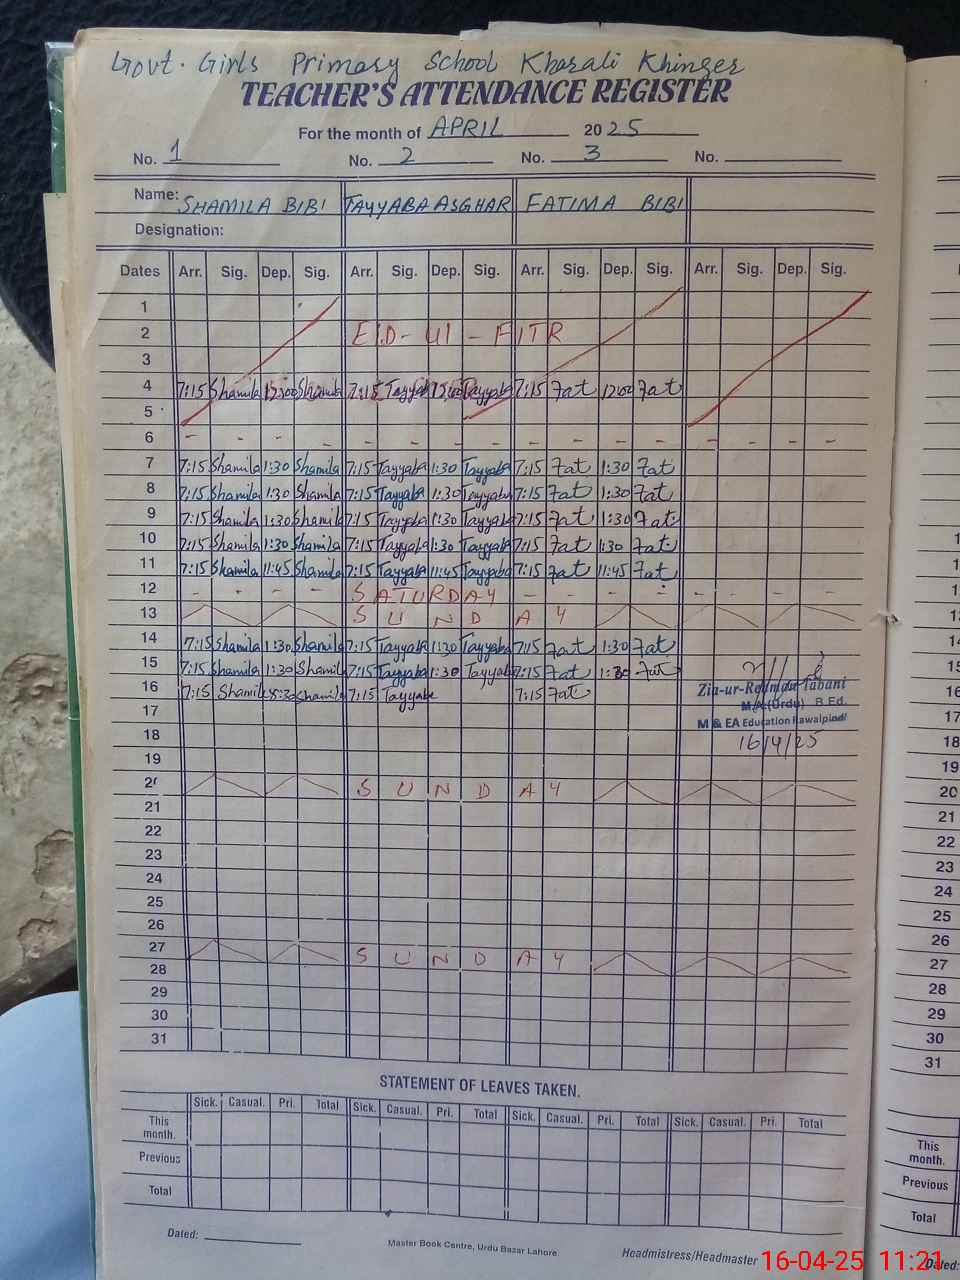 Govt. Girls Primary School Kharali Khinger
TEACHER'S ATTENDANCE REGISTER
For the month of APRIL 2025
No. 1 No. 2 No. 3 No.
Name: SHAMILA BIBI TAYYABA ASGHAR FATIMA BIBI
Designation:
Dates Arr. Sig. Dep. Sig. Arr. Sig. Dep. Sig. Arr. Sig. Dep. Sig. Arr. Sig. Dep. Sig.
1
2 EID-UL-FITR
3
4 7:15 Shamila 12:00 Shamila 7:15 Tayyaba 12:00 Tayyaba 7:15 Fat 12:00 Fat
5
6 - - - - - - - - - - - - - - - -
7 7:15 Shamila 1:30 Shamila 7:15 Tayyaba 1:30 Tayyaba 7:15 Fat 1:30 Fat
8 7:15 Shamila 1:30 Shamila 7:15 Tayyaba 1:30 Tayyaba 7:15 Fat 1:30 Fat
9 7:15 Shamila 1:30 Shamila 7:15 Tayyaba 1:30 Tayyaba 7:15 Fat 1:30 Fat
10 7:15 Shamila 1:30 Shamila 7:15 Tayyaba 1:30 Tayyaba 7:15 Fat 1:30 Fat
11 7:15 Shamila 11:45 Shamila 7:15 Tayyaba 11:45 Tayyaba 7:15 Fat 11:45 Fat
12 - - - - SATURDAY - - - - - - - -
13 SUNDAY
14 7:15 Shamila 1:30 Shamila 7:15 Tayyaba 1:30 Tayyaba 7:15 Fat 1:30 Fat
15 7:15 Shamila 1:30 Shamila 7:15 Tayyaba 1:30 Tayyaba 7:15 Fat 1:30 Fat
16 7:15 Shamila 8:30 Shamila 7:15 Tayyaba 7:15 Fat
Zia-ur-Rehman Tabani
M.A (Urdu) B.Ed.
M & EA Education Rawalpindi
16/4/25
17
18
19
20 SUNDAY
21
22
23
24
25
26
27 SUNDAY
28
29
30
31
STATEMENT OF LEAVES TAKEN.
Sick. Casual. Pri. Total Sick. Casual. Pri. Total Sick. Casual. Pri. Total Sick. Casual. Pri. Total
This month.
Previous
Total
Dated:
Master Book Centre, Urdu Bazar Lahore.
Headmistress/Headmaster
16-04-25 11:21
15
16
17
18
19
20
21
22
23
24
25
26
27
28
29
30
31
This
month.
Previous
Total
Dated: